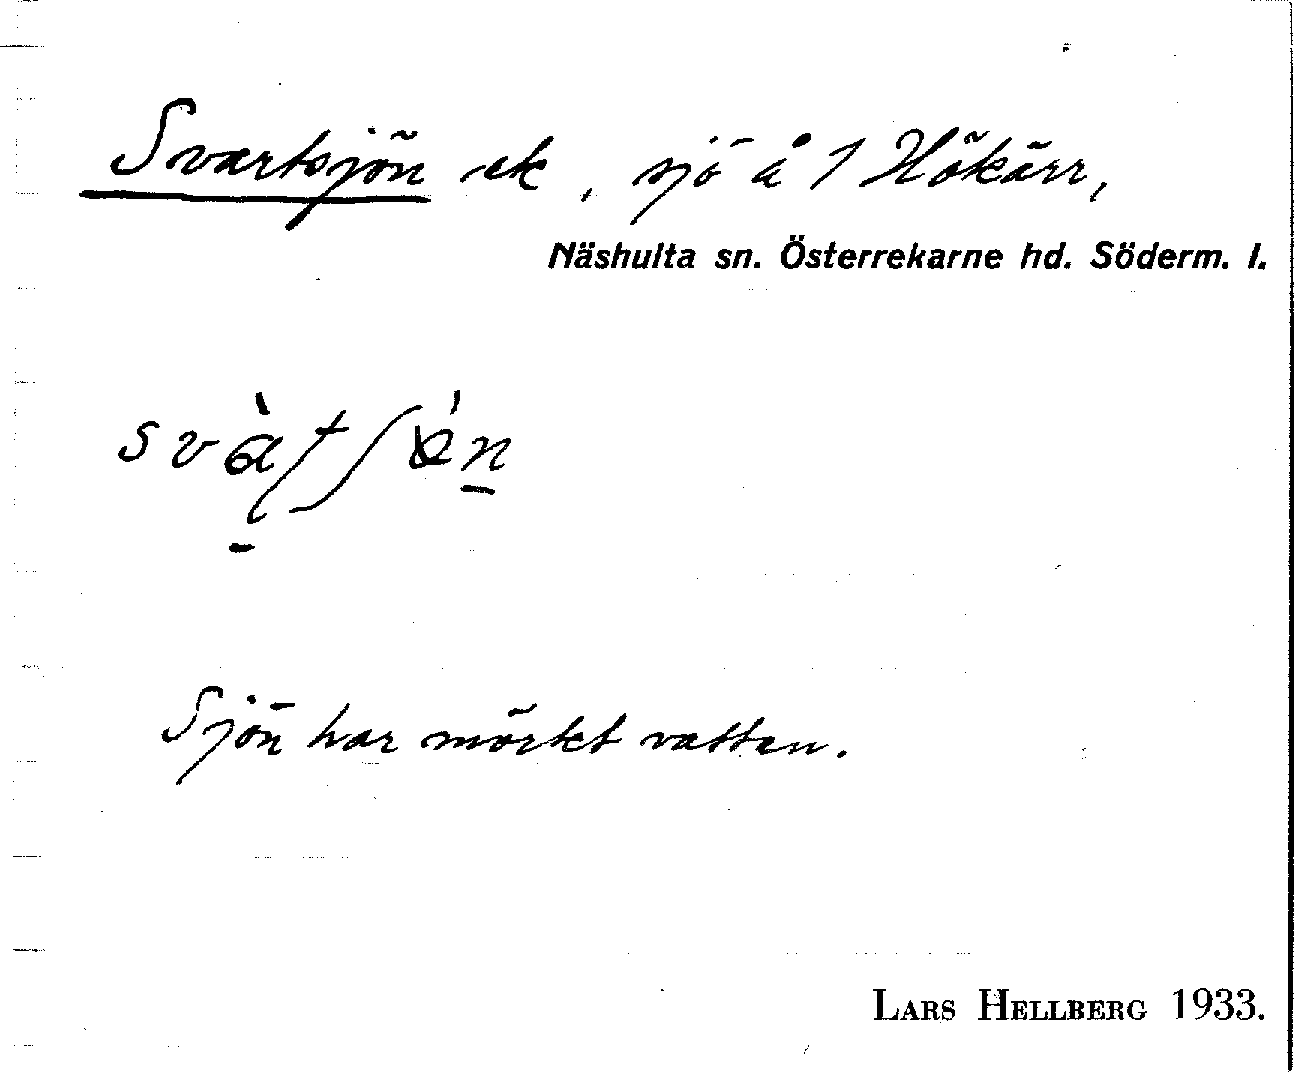 Svartsjön ek, sjö å 1 Hökärr,
Näshulta sn. Österrekarne hd. Söderm. l.
Sjön har mörkt vatten.
LARS HELLBERG 1933.